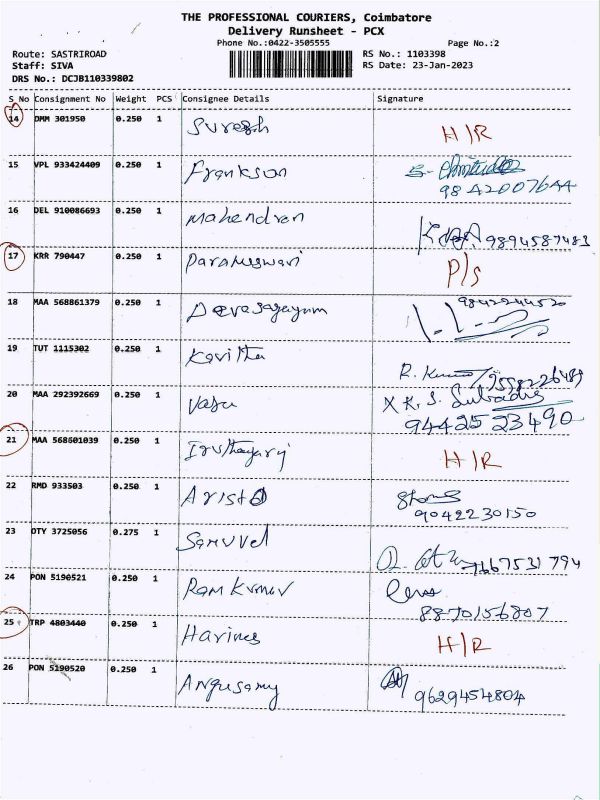 THE PROFESSIONAL COURIERS, Coimbatore
Delivery Runsheet - PCX
Phone No.:0422-3505555 Page No.:2
Route: SASTRIROAD RS No.: 1103398
Staff: SIVA RS Date: 23-Jan-2023
DRS No.: DCJB110339802
S No Consignment No Weight PCS Consignee Details Signature
14 DMM 301950 0.250 1 Suresh H/R
15 VPL 933424409 0.250 1 Frankson
9842007644
16 DEL 910086693 0.250 1 Mahendran
9894587483
17 KRR 790447 0.250 1 Parameswari P/S
18 MAA 568861379 0.250 1 Devasagayam 9842244520
19 TUT 1115302 0.250 1 Kavitha
R. 9558226489
20 MAA 292392669 0.250 1 Vasu X K. S.
9442523490
21 MAA 568601039 0.250 1 Iruthayaraj H/R
22 RMD 933503 0.250 1 Aristo
9042230150
23 OTY 3725056 0.275 1 Samuvel
7667531794
24 PON 5190521 0.250 1 Ramkumar
8870156807
25 TRP 4803440 0.250 1 Harines H/R
26 PON 5190520 0.250 1 Angusamy
9629454804